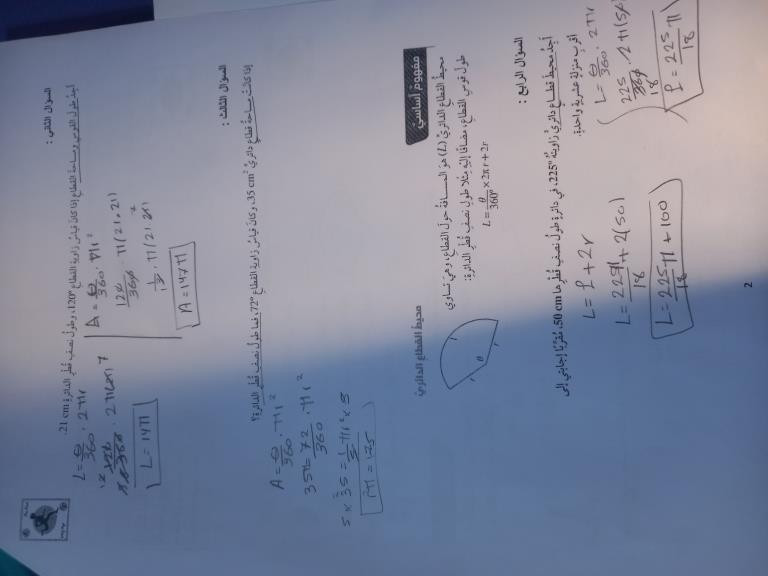 السؤال الثاني :
أجد طول القوس ومساحة القطاع إذا كان قياس زاوية القطاع 120°، وطول نصف قطر الدائرة 21 cm.
L = θ/360 · 2πr
A = θ/360 · πr²
120/360 · π(21·21)
1/3 · π(21·21)
L = 14π
A = 147π
السؤال الثالث :
إذا كانت مساحة قطاع دائري 35 cm²، وكان قياس زاوية القطاع 72°، فما طول نصف قطر الدائرة؟
A = θ/360 · πr²
35 = 72/360 · πr²
5 × 35 = 1/5 πr² × 5
محيط القطاع الدائري
مفهوم أساسي
محيط القطاع الدائري (L) هو المسافة حول القطاع، وهي تساوي
طول قوس القطاع، مضافًا إليه مثلا طول نصف قطر الدائرة:
L = θ/360° × 2πr + 2r
θ
السؤال الرابع :
أجد محيط قطاع دائري زاويته 225°، في دائرة طول نصف قطرها 50 cm، مقربًا إجابتي إلى
أقرب منزلة عشرية واحدة.
L = ℓ + 2r
L = θ/360 · 2πr
L = 225π/18 + 2(50)
225/360 · 2π(50)
L = 225/18 π + 100
ℓ = 225/18 π
2